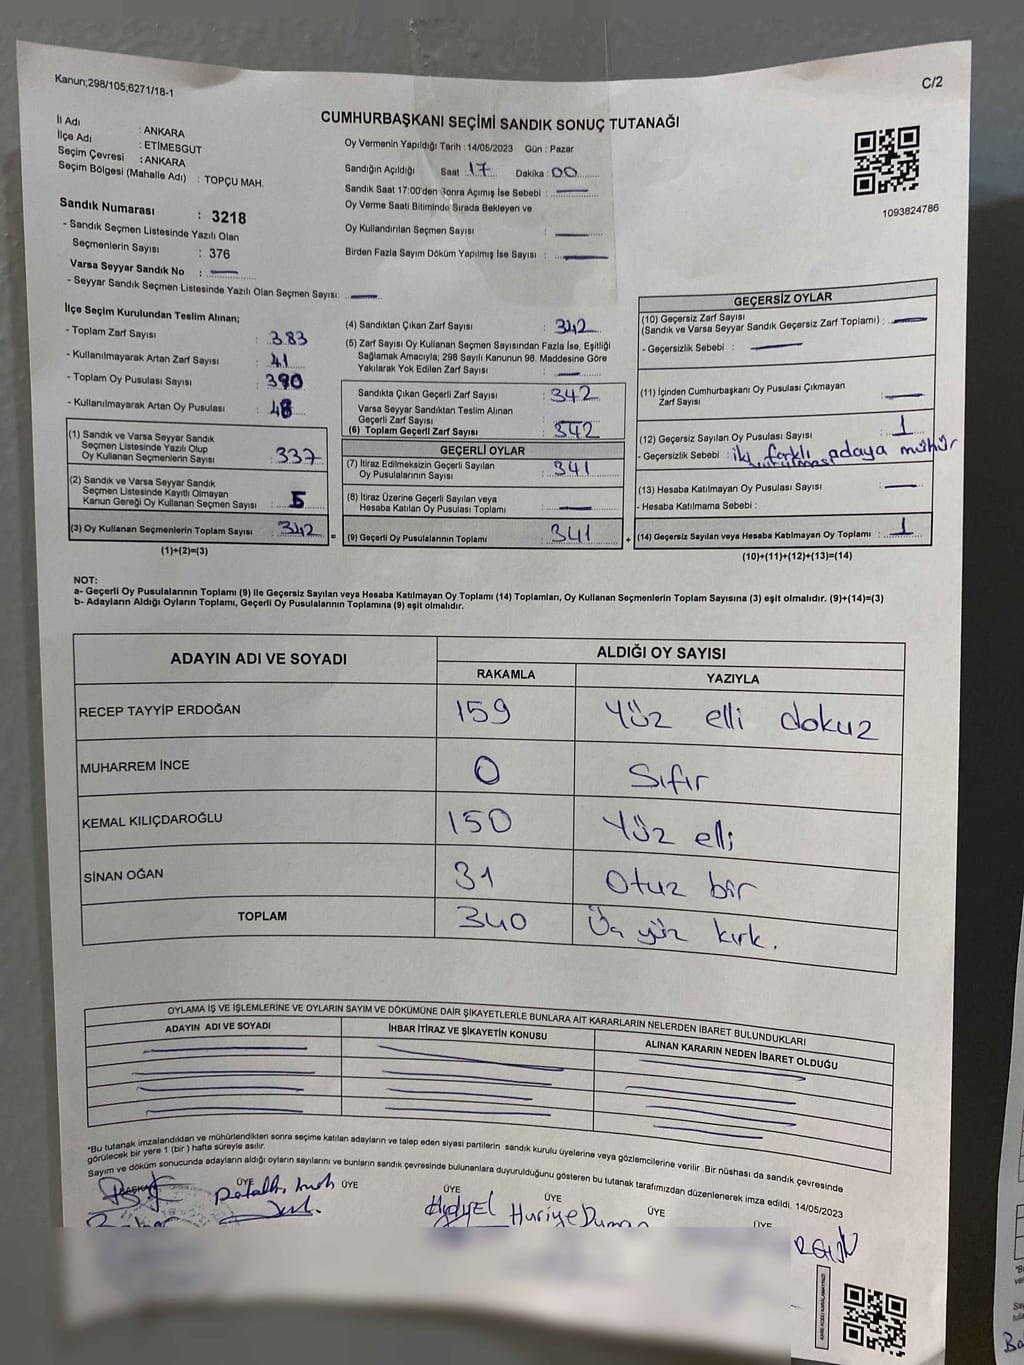 Kanun;298/105;6271/18-1
C/2
CUMHURBAŞKANI SEÇİMİ SANDIK SONUÇ TUTANAĞI
İl Adı : ANKARA
İlçe Adı : ETİMESGUT
Seçim Çevresi : ANKARA
Seçim Bölgesi (Mahalle Adı) : TOPÇU MAH.
Sandık Numarası : 3218
- Sandık Seçmen Listesinde Yazılı Olan
Seçmenlerin Sayısı : 376
Varsa Seyyar Sandık No :
- Seyyar Sandık Seçmen Listesinde Yazılı Olan Seçmen Sayısı:
Oy Vermenin Yapıldığı Tarih : 14/05/2023 Gün : Pazar
Sandığın Açıldığı Saat : 17 Dakika : 00
Sandık Saat 17:00'den Sonra Açılmış İse Sebebi :
Oy Verme Saati Bitiminde Sırada Bekleyen ve
Oy Kullandırılan Seçmen Sayısı :
Birden Fazla Sayım Döküm Yapılmış İse Sayısı :
1093824786
İlçe Seçim Kurulundan Teslim Alınan;
- Toplam Zarf Sayısı : 383
- Kullanılmayarak Artan Zarf Sayısı : 41
- Toplam Oy Pusulası Sayısı : 390
- Kullanılmayarak Artan Oy Pusulası : 48
(1) Sandık ve Varsa Seyyar Sandık
Seçmen Listesinde Yazılı Olup
Oy Kullanan Seçmenlerin Sayısı : 337
(2) Sandık ve Varsa Seyyar Sandık
Seçmen Listesinde Kayıtlı Olmayan
Kanun Gereği Oy Kullanan Seçmen Sayısı : 5
(3) Oy Kullanan Seçmenlerin Toplam Sayısı : 342
(1)+(2)=(3)
=
(4) Sandıktan Çıkan Zarf Sayısı : 342
(5) Zarf Sayısı Oy Kullanan Seçmen Sayısından Fazla İse, Eşitliği
Sağlamak Amacıyla; 298 Sayılı Kanunun 98. Maddesine Göre
Yakılarak Yok Edilen Zarf Sayısı :
Sandıkta Çıkan Geçerli Zarf Sayısı : 342
Varsa Seyyar Sandıktan Teslim Alınan
Geçerli Zarf Sayısı :
(6) Toplam Geçerli Zarf Sayısı : 342
GEÇERLİ OYLAR
(7) İtiraz Edilmeksizin Geçerli Sayılan
Oy Pusulalarının Sayısı : 341
(8) İtiraz Üzerine Geçerli Sayılan veya
Hesaba Katılan Oy Pusulası Toplamı :
(9) Geçerli Oy Pusulalarının Toplamı : 341
+
GEÇERSİZ OYLAR
(10) Geçersiz Zarf Sayısı
(Sandık ve Varsa Seyyar Sandık Geçersiz Zarf Toplamı) :
- Geçersizlik Sebebi :
(11) İçinden Cumhurbaşkanı Oy Pusulası Çıkmayan
Zarf Sayısı :
(12) Geçersiz Sayılan Oy Pusulası Sayısı : 1
- Geçersizlik Sebebi : iki farklı adaya mühür
vurulması
(13) Hesaba Katılmayan Oy Pusulası Sayısı :
- Hesaba Katılmama Sebebi :
(14) Geçersiz Sayılan veya Hesaba Katılmayan Oy Toplamı : 1
(10)+(11)+(12)+(13)=(14)
NOT:
a- Geçerli Oy Pusulalarının Toplamı (9) ile Geçersiz Sayılan veya Hesaba Katılmayan Oy Toplamı (14) Toplamları, Oy Kullanan Seçmenlerin Toplam Sayısına (3) eşit olmalıdır. (9)+(14)=(3)
b- Adayların Aldığı Oyların Toplamı, Geçerli Oy Pusulalarının Toplamına (9) eşit olmalıdır.
ADAYIN ADI VE SOYADI
ALDIĞI OY SAYISI
RAKAMLA YAZIYLA
RECEP TAYYİP ERDOĞAN 159 Yüz elli dokuz
MUHARREM İNCE 0 Sıfır
KEMAL KILIÇDAROĞLU 150 Yüz elli
SİNAN OĞAN 31 Otuz bir
TOPLAM 340 Üç yüz kırk.
OYLAMA İŞ VE İŞLEMLERİNE VE OYLARIN SAYIM VE DÖKÜMÜNE DAİR ŞİKAYETLERLE BUNLARA AİT KARARLARIN NELERDEN İBARET BULUNDUKLARI
ADAYIN ADI VE SOYADI İHBAR İTİRAZ VE ŞİKAYETİN KONUSU ALINAN KARARIN NEDEN İBARET OLDUĞU
*Bu tutanak imzalandıktan ve mühürlendikten sonra seçime katılan adayların ve talep eden siyasi partilerin sandık kurulu üyelerine veya gözlemcilerine verilir .Bir nüshası da sandık çevresinde
görülecek bir yere 1 (bir ) hafta süreyle asılır.
Sayım ve döküm sonucunda adayların aldığı oyların sayılarını ve bunların sandık çevresinde bulunanlara duyurulduğunu gösteren bu tutanak tarafımızdan düzenlenerek imza edildi. 14/05/2023
BAŞKAN ÜYE ÜYE ÜYE ÜYE ÜYE ÜYE
Huriye Duman